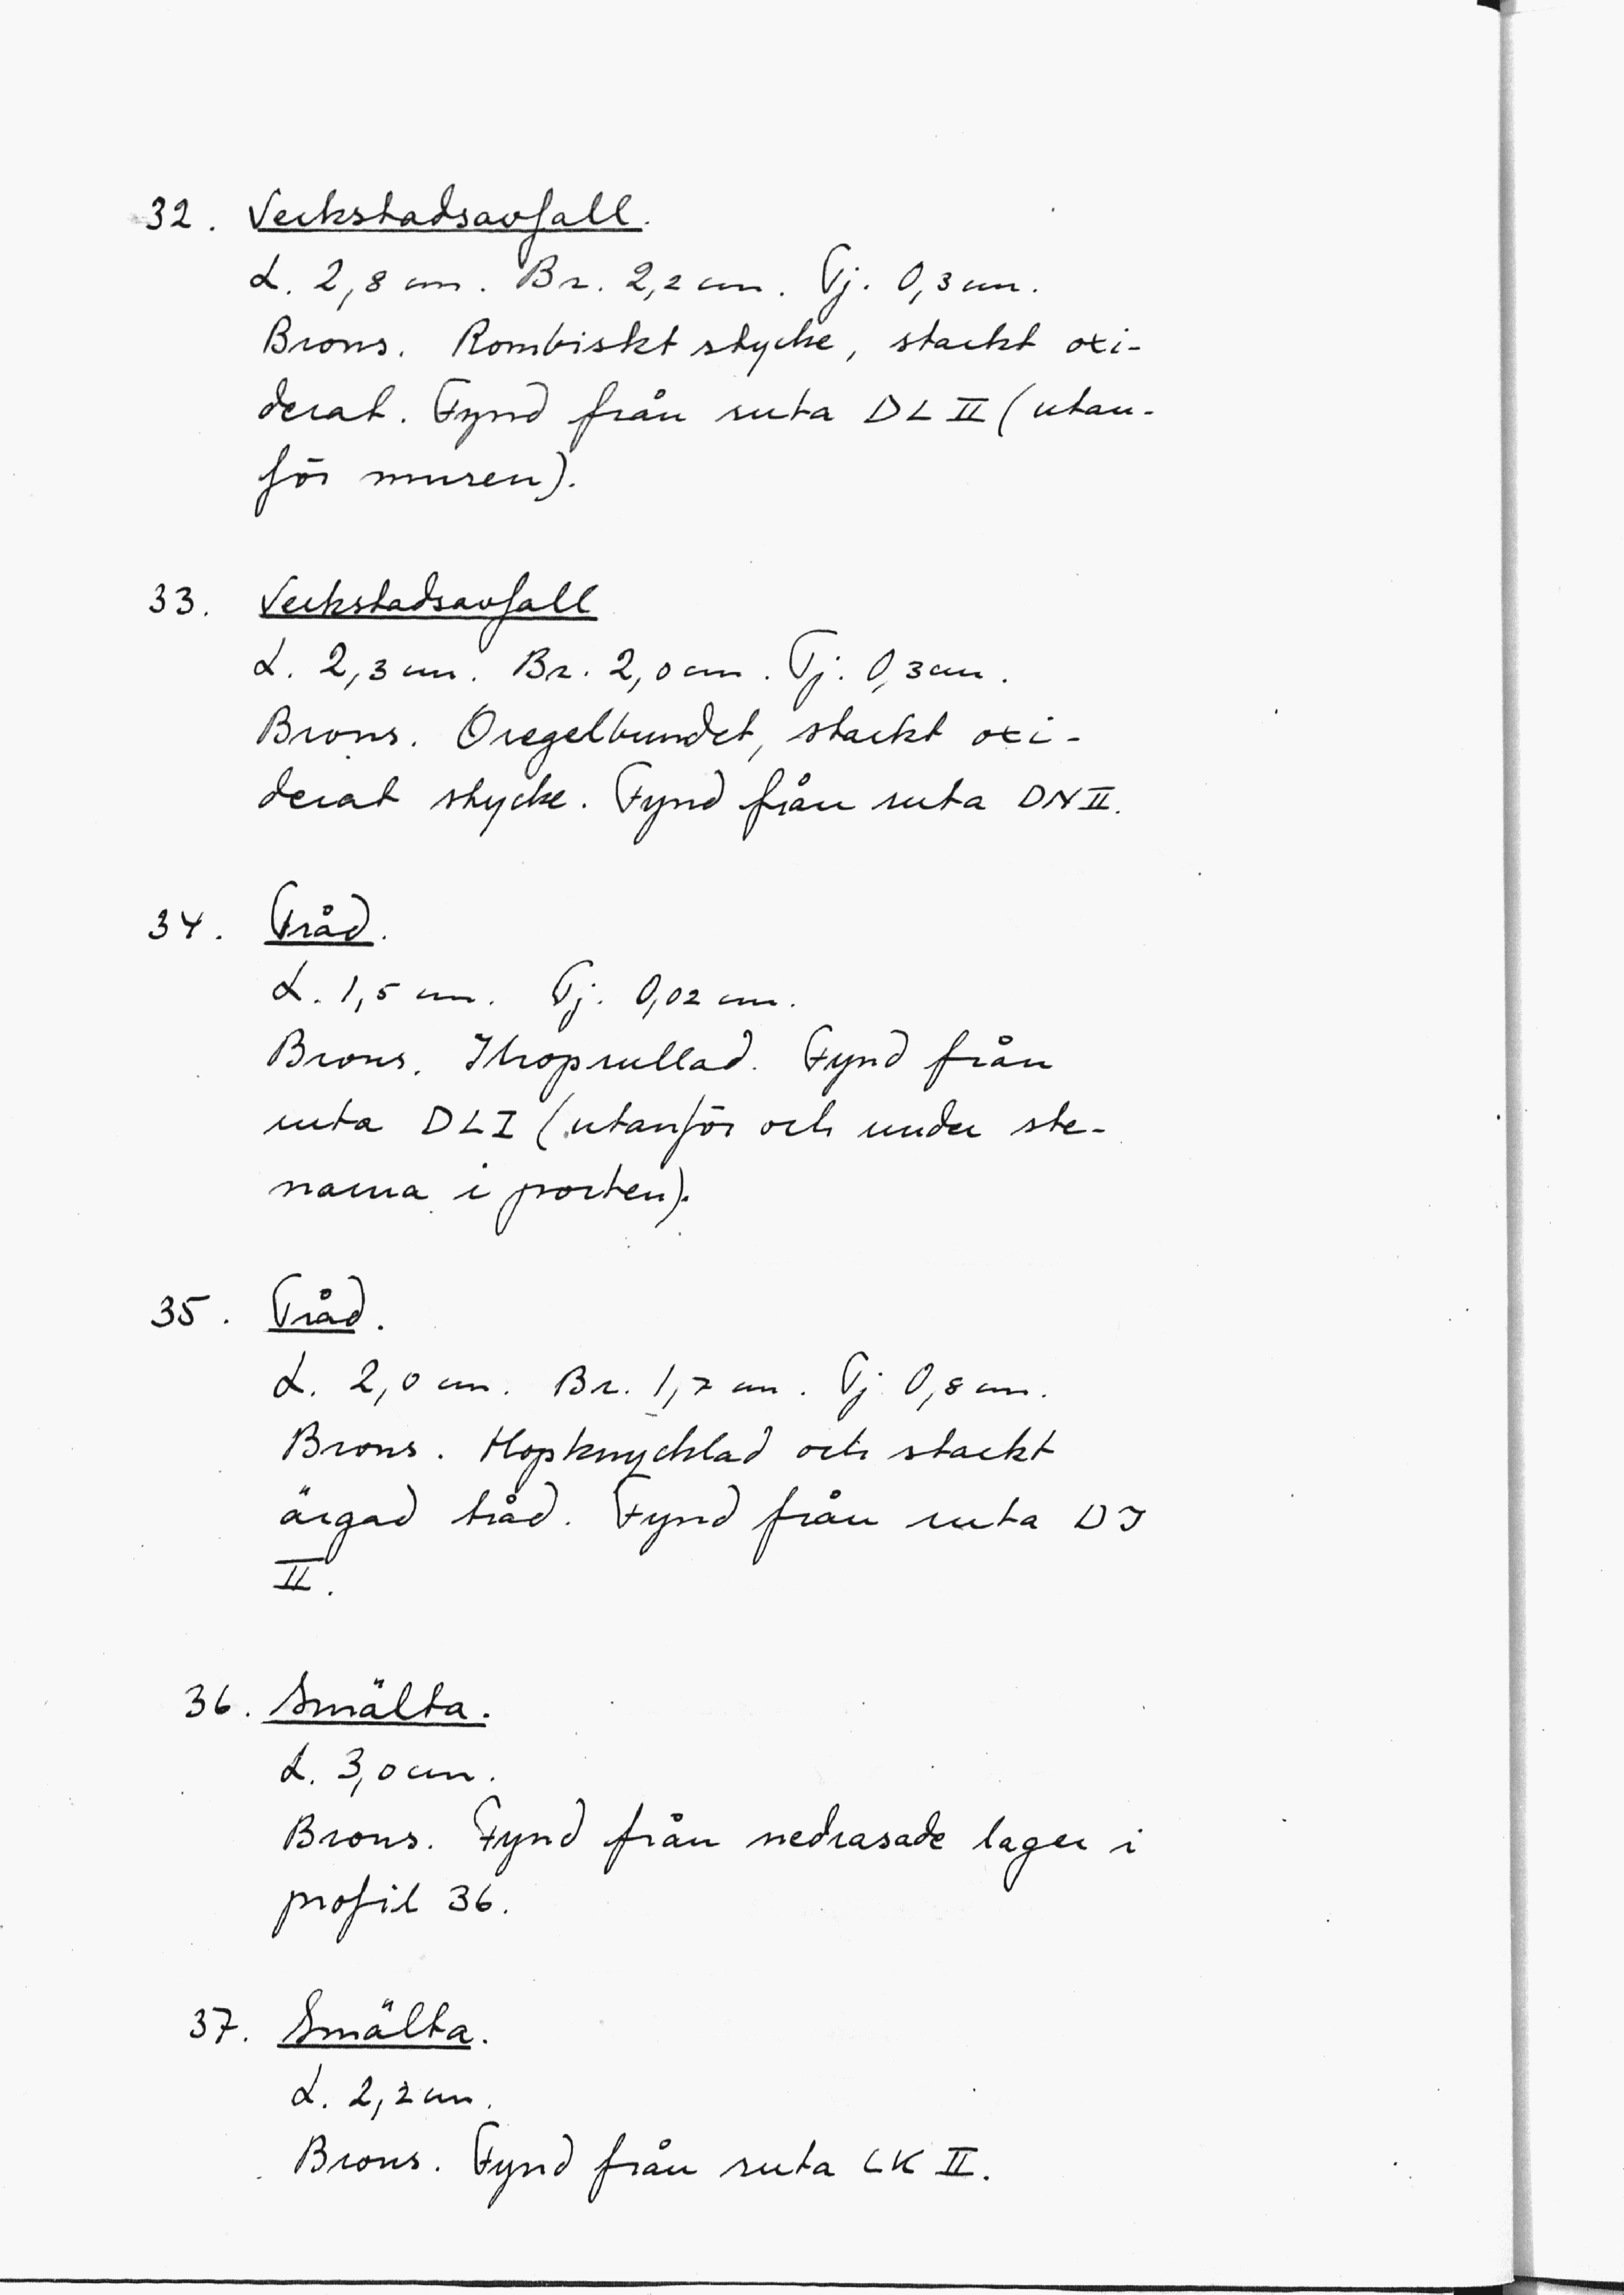 32. Verkstadsavfall.
L. 2,8 cm. Br. 2,2 cm. Tj. 0,3 cm.
Brons. Rombiskt stycke, starkt oxi-
derat. Fynd från ruta DL II (utan-
för muren).
33. Verkstadsavfall
L. 2,3 cm. Br. 2,0 cm. Tj. 0,3 cm.
Brons. Oregelbundet, starkt oxi-
derat stycke. Fynd från ruta DN II.
34. Tråd.
L. 1,5 cm. Tj. 0,02 cm.
Brons. Ihoprullad. Fynd från
ruta DL I (utanför och under ste-
narna i porten).
35. Tråd.
L. 2,0 cm. Br. 1,7 cm. Tj. 0,8 cm.
Brons. Hopknycklad och starkt
ärgad tråd. Fynd från ruta DJ
II.
36. Smälta.
L. 3,0 cm.
Brons. Fynd från nedrasade lager i
profil 36.
37. Smälta.
L. 2,2 cm.
Brons. Fynd från ruta CK II.